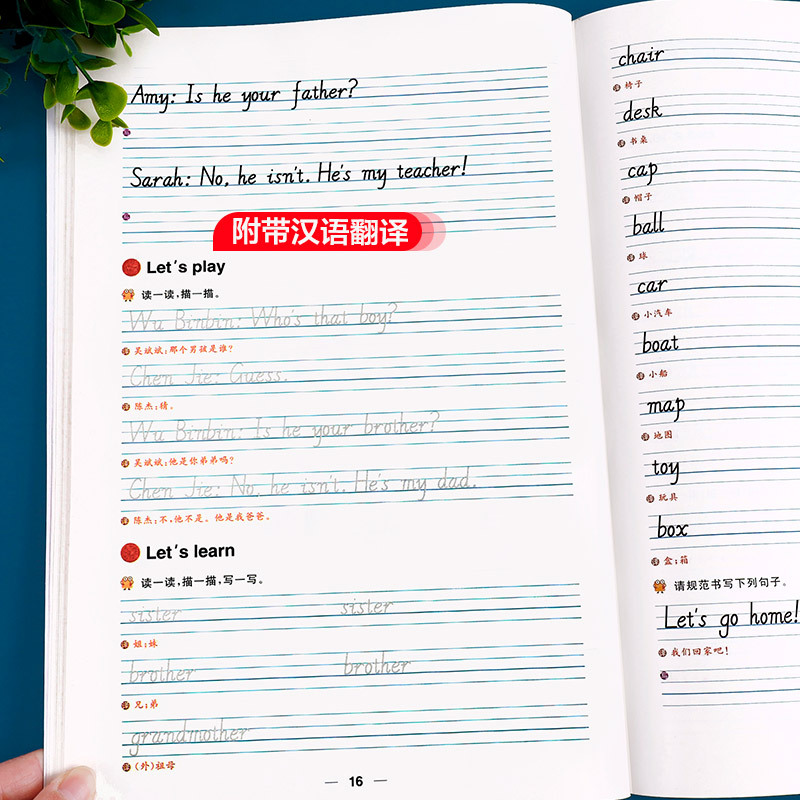 Amy: Is he your father?
Sarah: No, he isn't. He's my teacher!
附带汉语翻译
Let's play
读一读,描一描。
Wu Binbin: Who's that boy?
译 吴斌斌:那个男孩是谁?
Chen Jie: Guess.
译 陈杰:猜。
Wu Binbin: Is he your brother?
译 吴斌斌:他是你弟弟吗?
Chen Jie: No, he isn't. He's my dad.
译 陈杰:不,他不是。他是我爸爸。
Let's learn
读一读,描一描,写一写。
sister sister
译 姐;妹
brother brother
译 兄;弟
grandmother
译 (外)祖母
— 16 —
chair
译 椅子
desk
译 书桌
cap
译 帽子
ball
译 球
car
译 小汽车
boat
译 小船
map
译 地图
toy
译 玩具
box
译 盒;箱
请规范书写下列句子。
Let's go home!
译 我们回家吧!